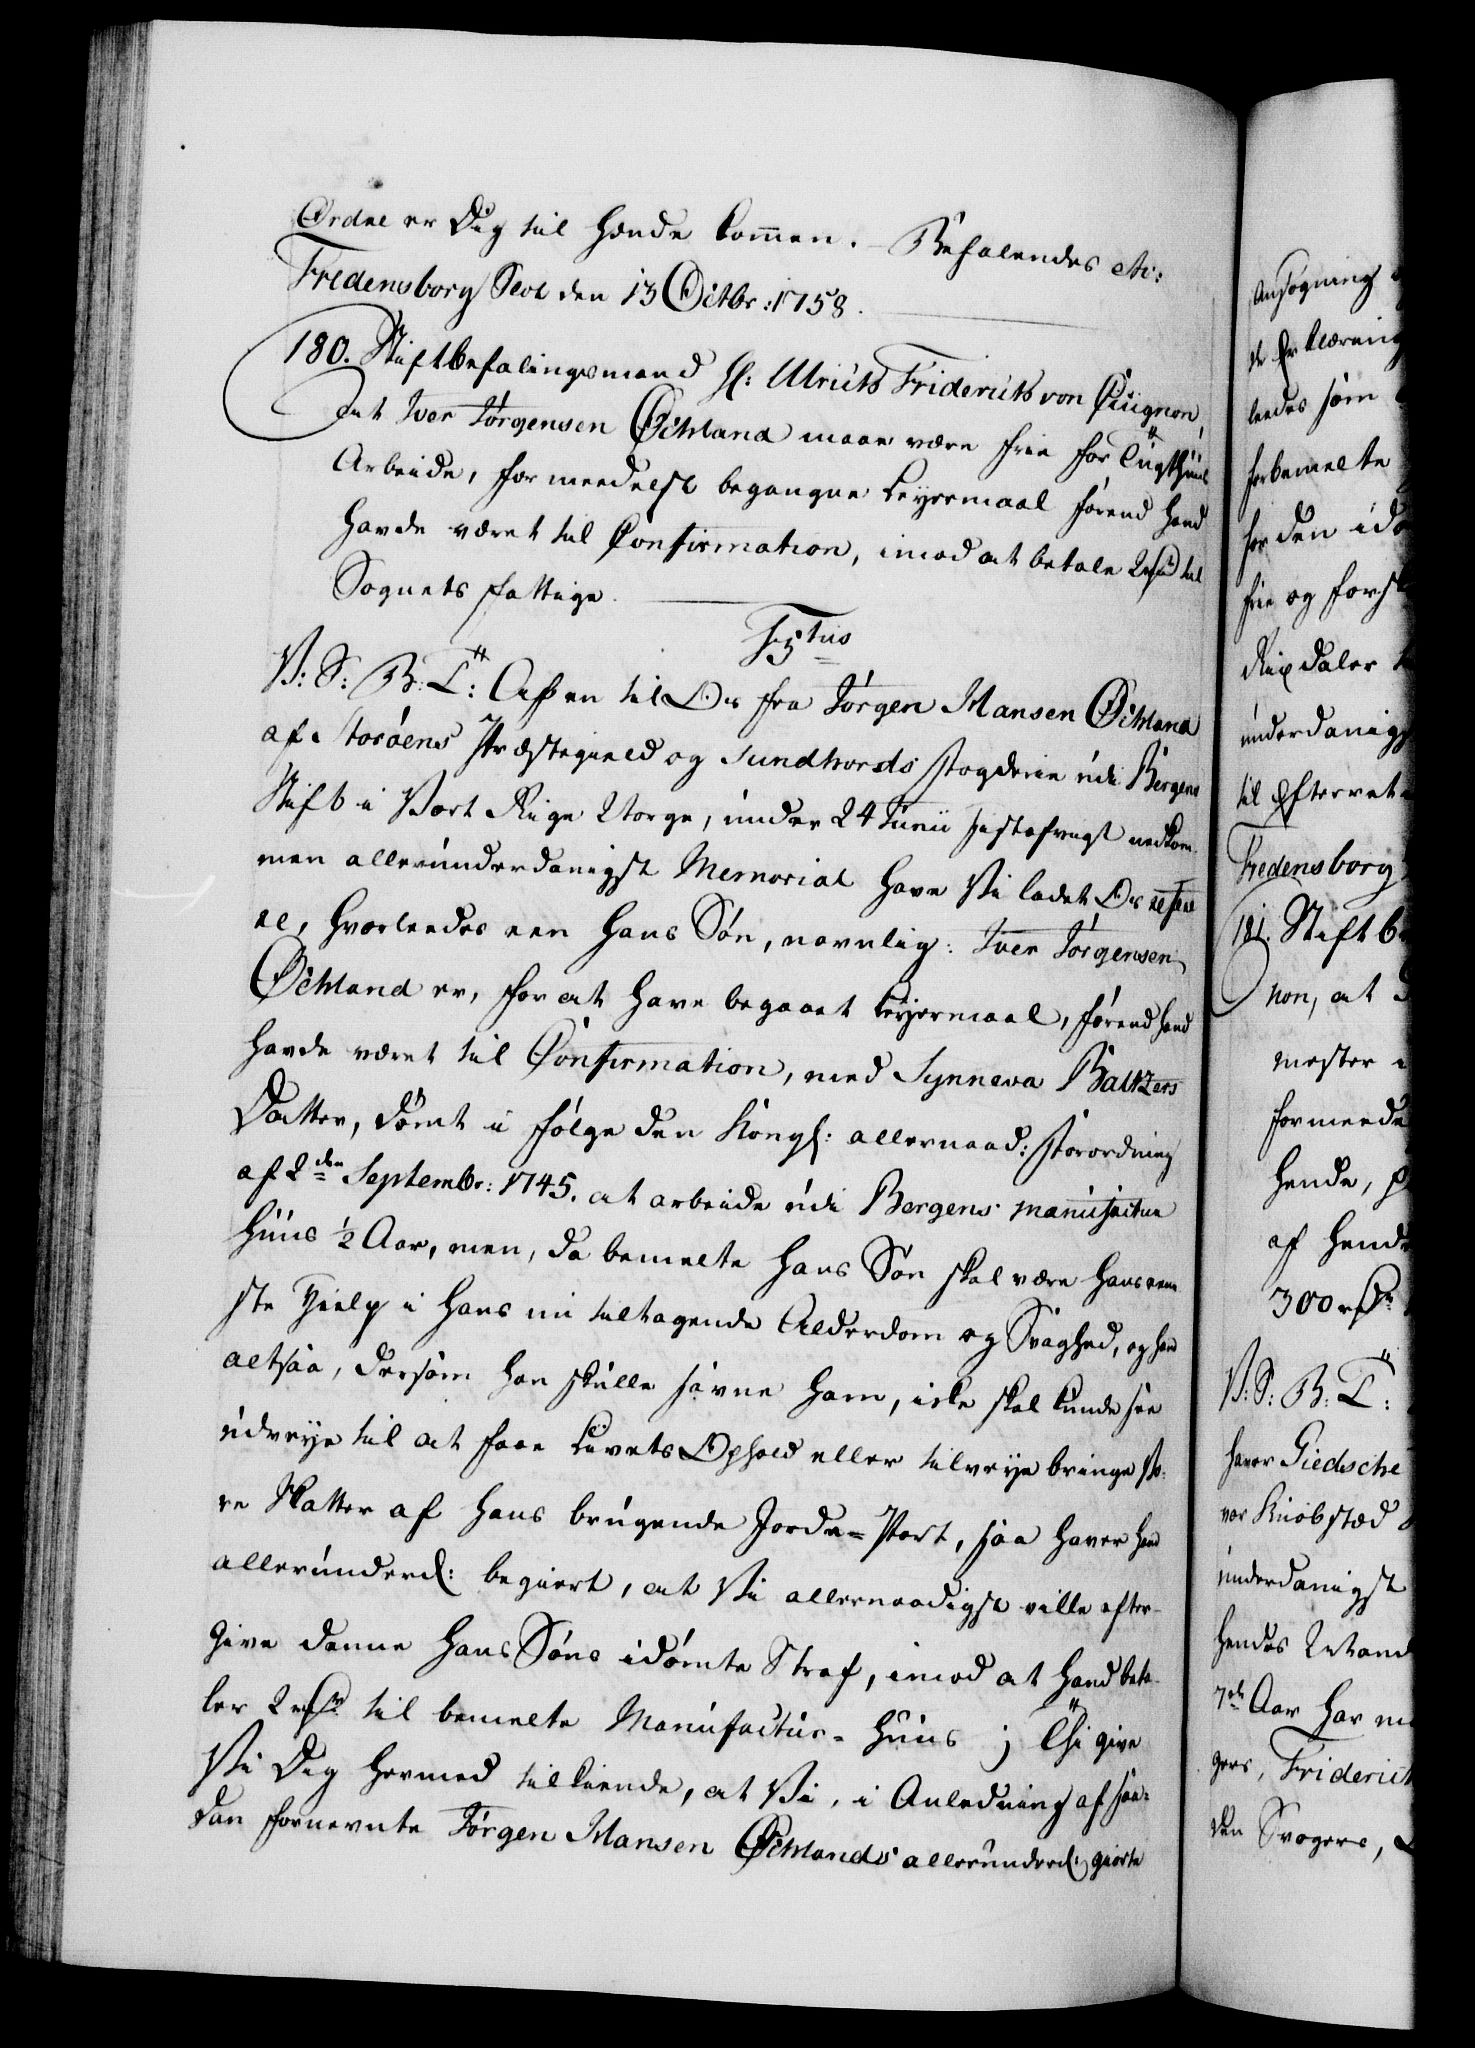 Ordre er Dig til hænde kommen. Befalendes etc:
Fredensborg Slot den 13 Octbr: 1758.
180. Stiftbefalingsmand H: Ulrich Friderich von Cicignon,
At Iver Jørgensen Øchland maae være frie for Tugthuus
Arbeide, formeedelst begangne Leyermaal førend hand
havde været til Confirmation, imod at betale 2 rd til
Sognets fattige.
V: S: G: T: Efter til Os fra Jørgen Mansen Øchland
af Storøens Præstegield og Sundhords fogderie udi Bergens
Stift i Vort Rige Norge, under 24 Junii sistafvigt nedkom-
men allerunderdanigst Memorial have Vi ladet Os refere-
re, hvorledes een hans Søn, navnlig: Iver Jørgensen
Øchland er, for at have begaaet Leyermaal, førend hand
havde været til Confirmation, med Synneva Baltzers
Datter, dømt i følge den Kongl: allernaad: forordning
af 2den Septembr: 1745. at arbeide udi Bergens manufactur
Huus ½ Aar, men, da bemelte hans Søn skal være hans eene-
ste Hielp i hans nu tiltagende Alderdom og Svaghed, og hand
altsaa, dersom han skulle savne ham, icke skal kunde see
udveye til at faae Livets Ophold eller tilveye bringe Vo-
re Skatter af hans brugende Jorde-Part, saa haver hand
allerunderd: begiert, at Vi allernaadigst ville efter-
give denne hans Søns idømte Straf, imod at hand beta-
ler 2 rd til bemelte Manufactur-Huus; Thi give
Vi Dig hermed tilkiende, at Vi, i Anledning af saa-
dan fornevnte Jørgen Mansen Øchlands allerunderd: giorte
Ansøgning
de Erklæring
ledes som
forbemelte
for den idø
frie og forsk
Rixdaler
underdanigst
til Efterret
Fredensborg
181. Stiftb
non, at
mester
formeede
hende,
af hende
300 rd
V: S: G: T:
haver Giedsche
vor Kiøbstæd
underdanigst
hendes Mand
7de Aar har
gers, Friderich
den Svogers,